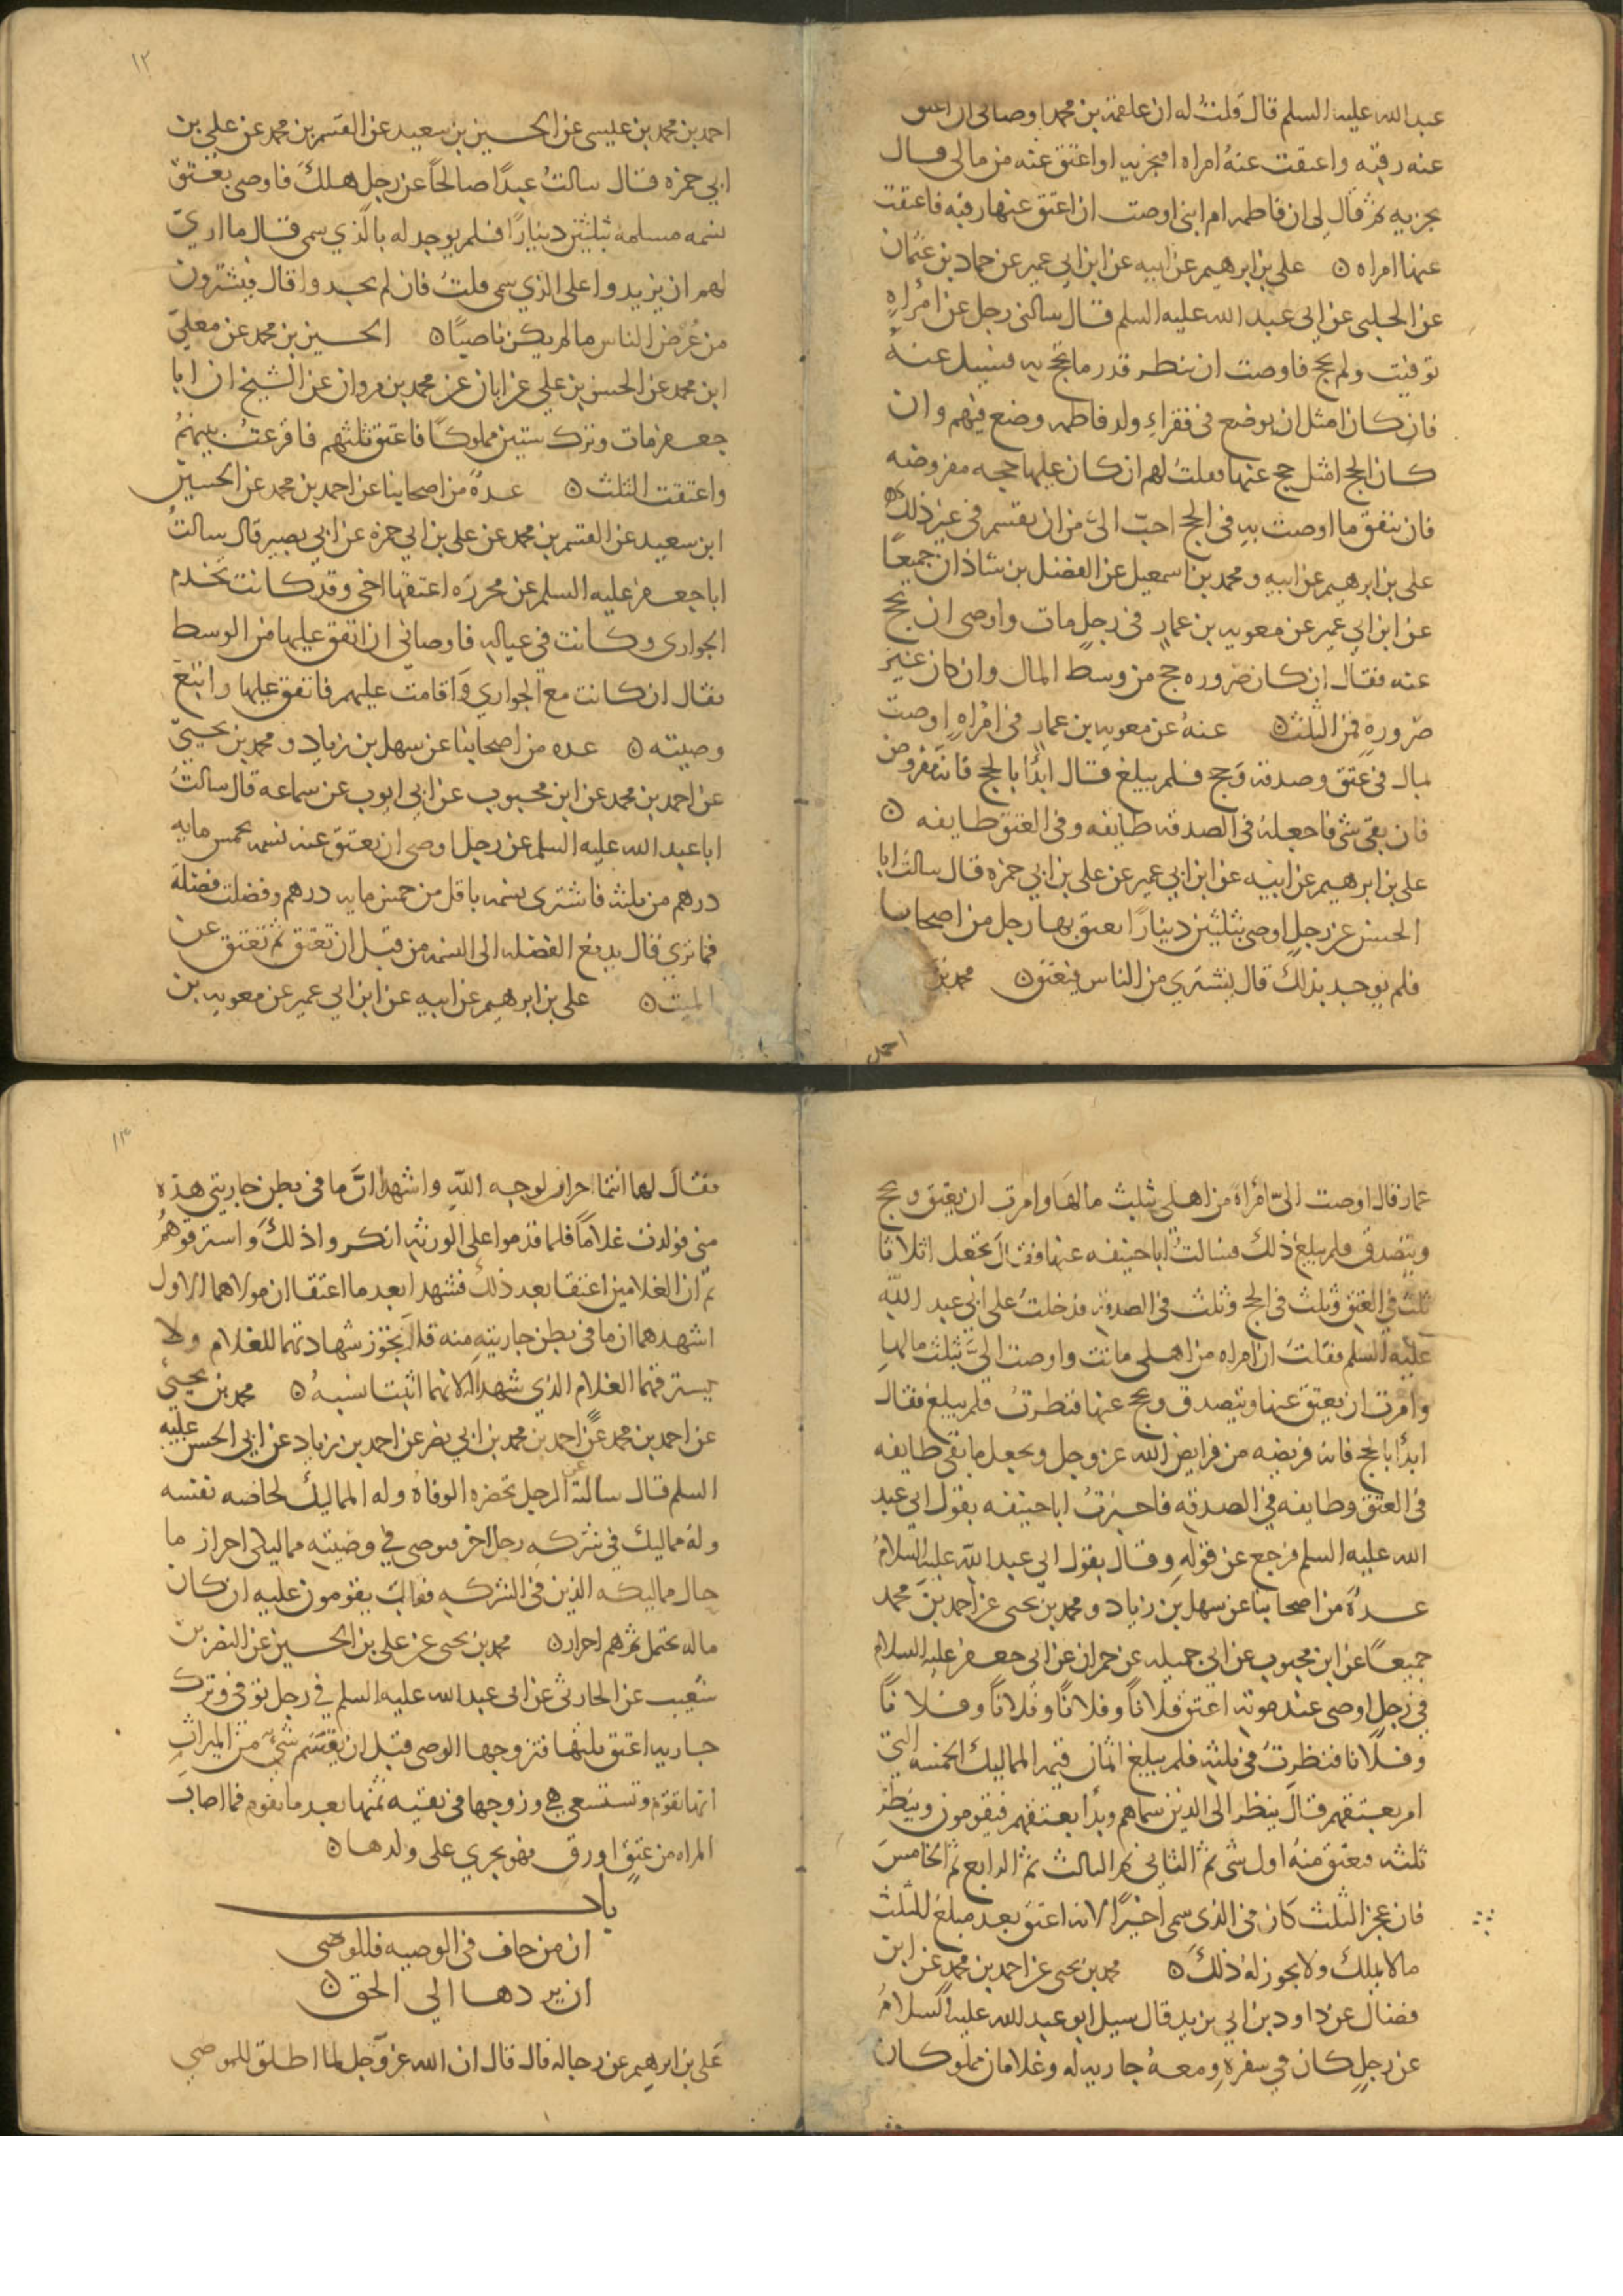 عبد الله عليه السلم قال قلت له ان علقمة بن محمد اوصاني ان اعتق
عنه رقبه واعتقت عنهُ امراه افيجزيه او اعتق عنه من مالي قال
يجزيه ثم قال لي ان فاطمه ام ابني اوصت ان اعتق عنها رقبه فاعتقت
عنها امراه ن علي بن ابرهيم عن ابيه عن ابن ابي عمير عن حماد بن عثمان
عن الحلبي عن ابي عبد الله عليه السلم قال سالني رجل عن امراهٍ
توفيت ولم تحج فاوصت ان ينظر قدر ما تحج به فيسيل عنه
فان كان امثل ان يوضع في فقراءِ ولد فاطمه وضع فيهم وان
كان الحج امثل حج عنها فقلتُ لهم ان كان عليها حجه مفروضه
فان ينفق ما اوصت به في الحج احبّ اليّ من ان يقسم في غير ذلك ن
علي بن ابرهيم عن ابيه ومحمد بن اسمعيل عن الفضل بن شاذان جميعًا
عن ابن ابي عمير عن معويه بن عمار في رجل مات واوصى ان يحج
عنه فقال ان كان ضروره حج من وسط المال وان كان غير
ضرورهٍ فمن الثلث ن عنهُ عن معويه بن عمار في امراهٍ اوصت
بمال في عتق وصدقه وحج فلم يبلغ قال ابدأ بالحج فانه مفروض
فان بقي شي فاجعلهُ في الصدقه طايفه وفي العتق طايفه ن
علي بن ابرهيم عن ابيه عن ابن ابي عمير عن علي بن ابي حمزه قال سالتُ ابا
الحسن عن رجل اوصى بثلثين دينارًا يعتق بها رجل من اصحابنا
فلم يوجد بذلك قال يشتري من الناس فيعتق ن محمد بن
احمد
١٢
احمد بن محمد بن عيسى عن الحسين بن سعيد عن القسم بن محمد عن علي بن
ابي حمزه قال سالتُ عبدًا صالحًا عن رجل هلك فاوصى بعتق
نسمه مسلمه بثلثين دينارًا فلم يوجد له بالذي سمى قال ما اري
لهم ان يزيدوا على الذي سمي قلتُ فان لم يجدوا قال فيشترون
من عُرض الناس ما لم يكن ناصبًا ن الحسين بن محمد عن معلى
ابن محمد عن الحسن بن علي عن ابان عن محمد بن مروان عن الشيخ ان ابا
جعفر مات وترك ستين مملوكًا فاعتق ثلثهم فاقرعتُ بينهمُ
واعتقت الثلث ن عدةٌ من اصحابنا عن احمد بن محمد عن الحسين
ابن سعيد عن القسم بن محمد عن علي بن ابي حمزه عن ابي بصير قال سالتُ
ابا جعفر عليه السلم عن محررَه اعتقها اخي وقد كانت تخدم
الجواري وكانت في عياله فاوصاني ان انفق عليها من الوسط
فقال ان كانت مع الجواري واقامت عليهم فانفق عليها واتبع
وصيته ن عده من اصحابنا عن سهل بن زياد ومحمد بن يحيى
عن احمد بن محمد عن ابن محبوب عن ابي ايوب عن سماعه قال سالتُ
ابا عبد الله عليه السلم عن رجل اوصى ان يعتق عنه نسمه بخمس مايه
درهم من ثلثه فاشتري نسمه باقل من خمس مايه درهم وفضلت فضلة
فما تري قال يدفع الفضله الى النسمه من قبل ان تعتق ثم تعتق عن
الميت ن علي بن ابرهيم عن ابيه عن ابن ابي عمير عن معويه بن
عمار قال اوصت اليّ امراة من اهلي بثلث مالها وامرت ان يعتق ويحج
ويتصدق فلم يبلغ ذلك فسالتُ ابا حنيفه عنها فقال تجعل اثلاثا
ثلث في العتق وثلث في الحج وثلث في الصدقه فدخلتُ علي ابي عبد الله
عليه السلم فقلت ان امراه من اهلي ماتت واوصت اليّ بثلث مالها
وامرت ان يعتق عنها ويتصدق ويحج عنها فنظرتُ فلم يبلغ فقال
ابدأ بالحج فانه فريضه من فرايض الله عز وجل ويجعل ما بقي طايفه
في العتق وطايفه في الصدقه فاخبرتُ ابا حنيفه بقول ابي عبد
الله عليه السلم فرجع عن قوله وقال بقول ابي عبد الله عليه السلامُ
عدةٌ من اصحابنا عن سهل بن زياد ومحمد بن يحيى عن احمد بن محمد
جميعًا عن ابن محبوب عن ابي جميله عن حمران عن ابي جعفر عليه السلام
في رجل اوصى عند موته اعتق فلاناً وفلانًا وفلاناً وفلاناً
وفلانا فنظرتُ في ثلثه فلم يبلغ اثمان قيمه المماليك الخمسه التي
امر بعتقهم قال ينظر الى الذين سماهم وبدأ بعتقهم فيقومون وينظر
ثلثه فيعتق منهُ اول شي ثم الثاني ثم الثالث ثم الرابع ثم الخامس
فان عجز الثلث كان في الذي سمي اخيرًا لانه اعتق بعد مبلغ الثلث
ما لا يملك ولا يجوز له ذلك ن محمد بن يحيى عن احمد بن محمد عن ابن
فضال عن داود بن ابي يزيد قال سيل ابو عبد الله عليه السلامُ
عن رجلٍ كان في سفرهِ ومعهُ جاريه له وغلامان مملوكان
١٣
فقال لهما انتما احرار لوجه الله واشهدا انّ ما في بطن جاريتي هذه
مني فولدت غلامًا فلما قدموا على الورثه انكروا ذلك واسترقوهمُ
ثم ان الغلامين اعتقا بعد ذلك فشهدا بعد ما اعتقا ان مولاهما الاول
اشهدهما ان ما في بطن جاريته منه قال تجوز شهادتهما للغلام ولا
يسترقهما الغلام الذي شهدا له لانهما اثبتا نسبهُ ن محمد بن يحيى
عن احمد بن محمد عن احمد بن محمد بن ابي نصر عن احمد بن زياد عن ابي الحسن عليه
السلم قال سالته عن الرجل تحضره الوفاة وله المماليك لخاصه نفسه
وله مماليك في شركه رجل اخر فيوصي في وصيته مماليكي احرار ما
حال مماليكه الذين في الشركه فقال يقومون عليه ان كان
ماله يحتمل ثم هم احرار ن محمد بن يحيى عن علي بن الحسين عن النضر بن
شعيب عن الحارثي عن ابي عبد الله عليه السلم في رجل توفي وترك
جاريه اعتق ثلثها فتزوجها الوصي قبل ان يقتسم شيٌ من الميراث
انها تقوّم وتستسعي هي وزوجها في بقيه ثمنها بعد ما يقوم فما اصاب
المراه من عتقٍ او رق فهو يجري على ولدها ن
باب
ان من حاف في الوصيه فللوصي
ان يردها الي الحق ن
علي بن ابرهيم عن رجاله قال قال ان الله عز وجل لما اطلق للموصي